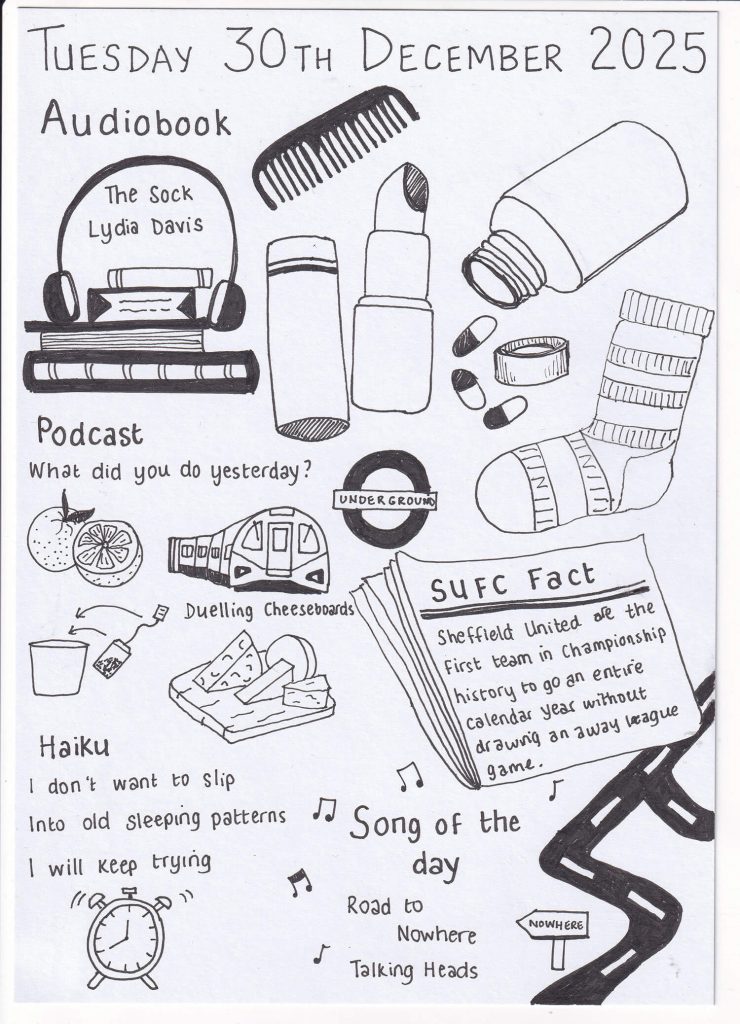 TUESDAY 30TH DECEMBER 2025
Audiobook
The Sock
Lydia Davis
Podcast
What did you do yesterday?
UNDERGROUND
Duelling Cheeseboards
SUFC Fact
Sheffield United are the
first team in Championship
history to go an entire
calendar year without
drawing an away league
game.
Haiku
I don't want to slip
Into old sleeping patterns
I will keep trying
Song of the
day
Road to
Nowhere
Talking Heads
NOWHERE